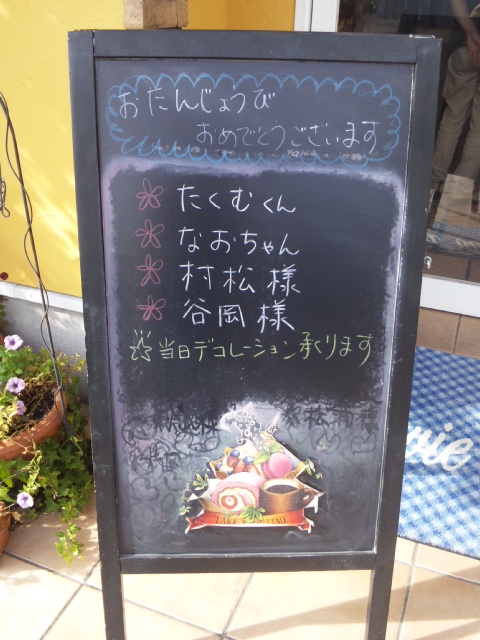 おたんじょうび
おめでとうございます
たくむくん
なおちゃん
村松様
谷岡様
当日デコレーション承ります